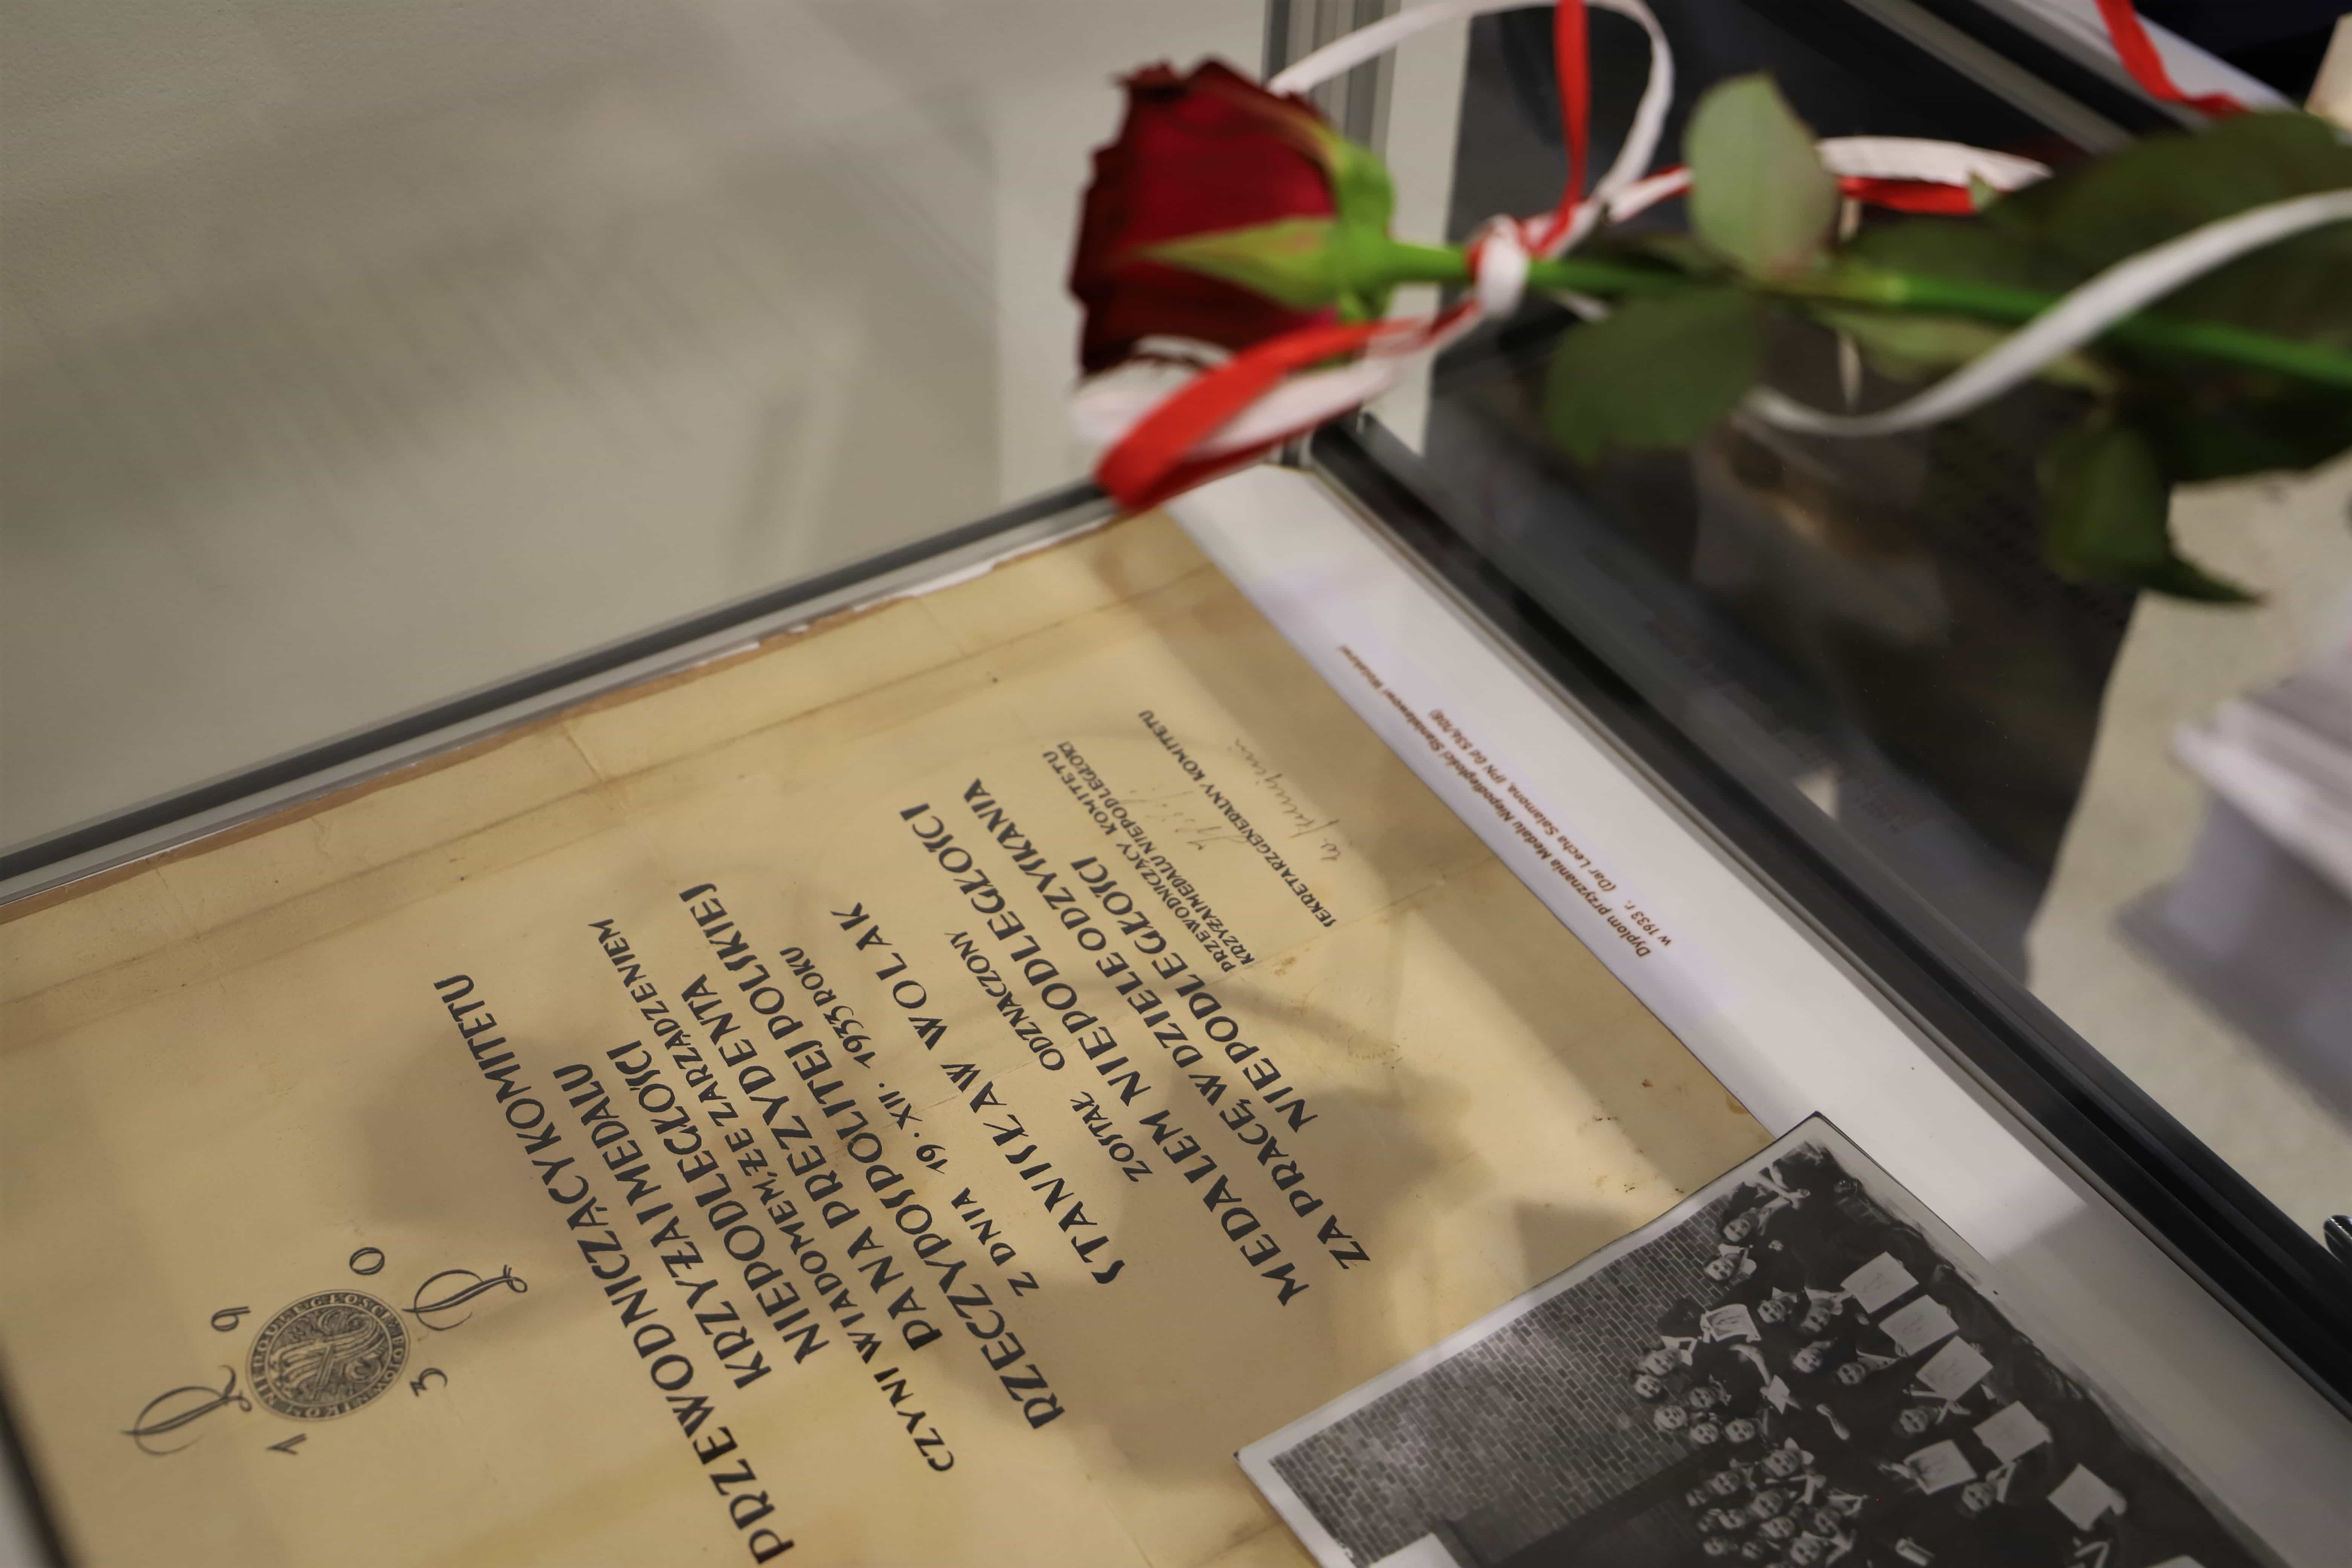 R P
1 9 3 0
PRZEWODNICZĄCY KOMITETU
KRZYŻA I MEDALU
NIEPODLEGŁOŚCI
CZYNI WIADOMEM, ŻE ZARZĄDZENIEM
PANA PREZYDENTA
RZECZYPOSPOLITEJ POLSKIEJ
Z DNIA 19. XII. 1933 ROKU
STANISŁAW WOLAK
ZOSTAŁ ODZNACZONY
MEDALEM NIEPODLEGŁOŚCI
ZA PRACĘ W DZIELE ODZYSKANIA
NIEPODLEGŁOŚCI
PRZEWODNICZĄCY KOMITETU
KRZYŻA I MEDALU NIEPODLEGŁOŚCI
SEKRETARZ GENERALNY KOMITETU
Dyplom przyznania Medalu Niepodległości Stanisławowi Wolakowi
w 1933 r. (Dar Lecha Salamona, IPN Gd 536/108)